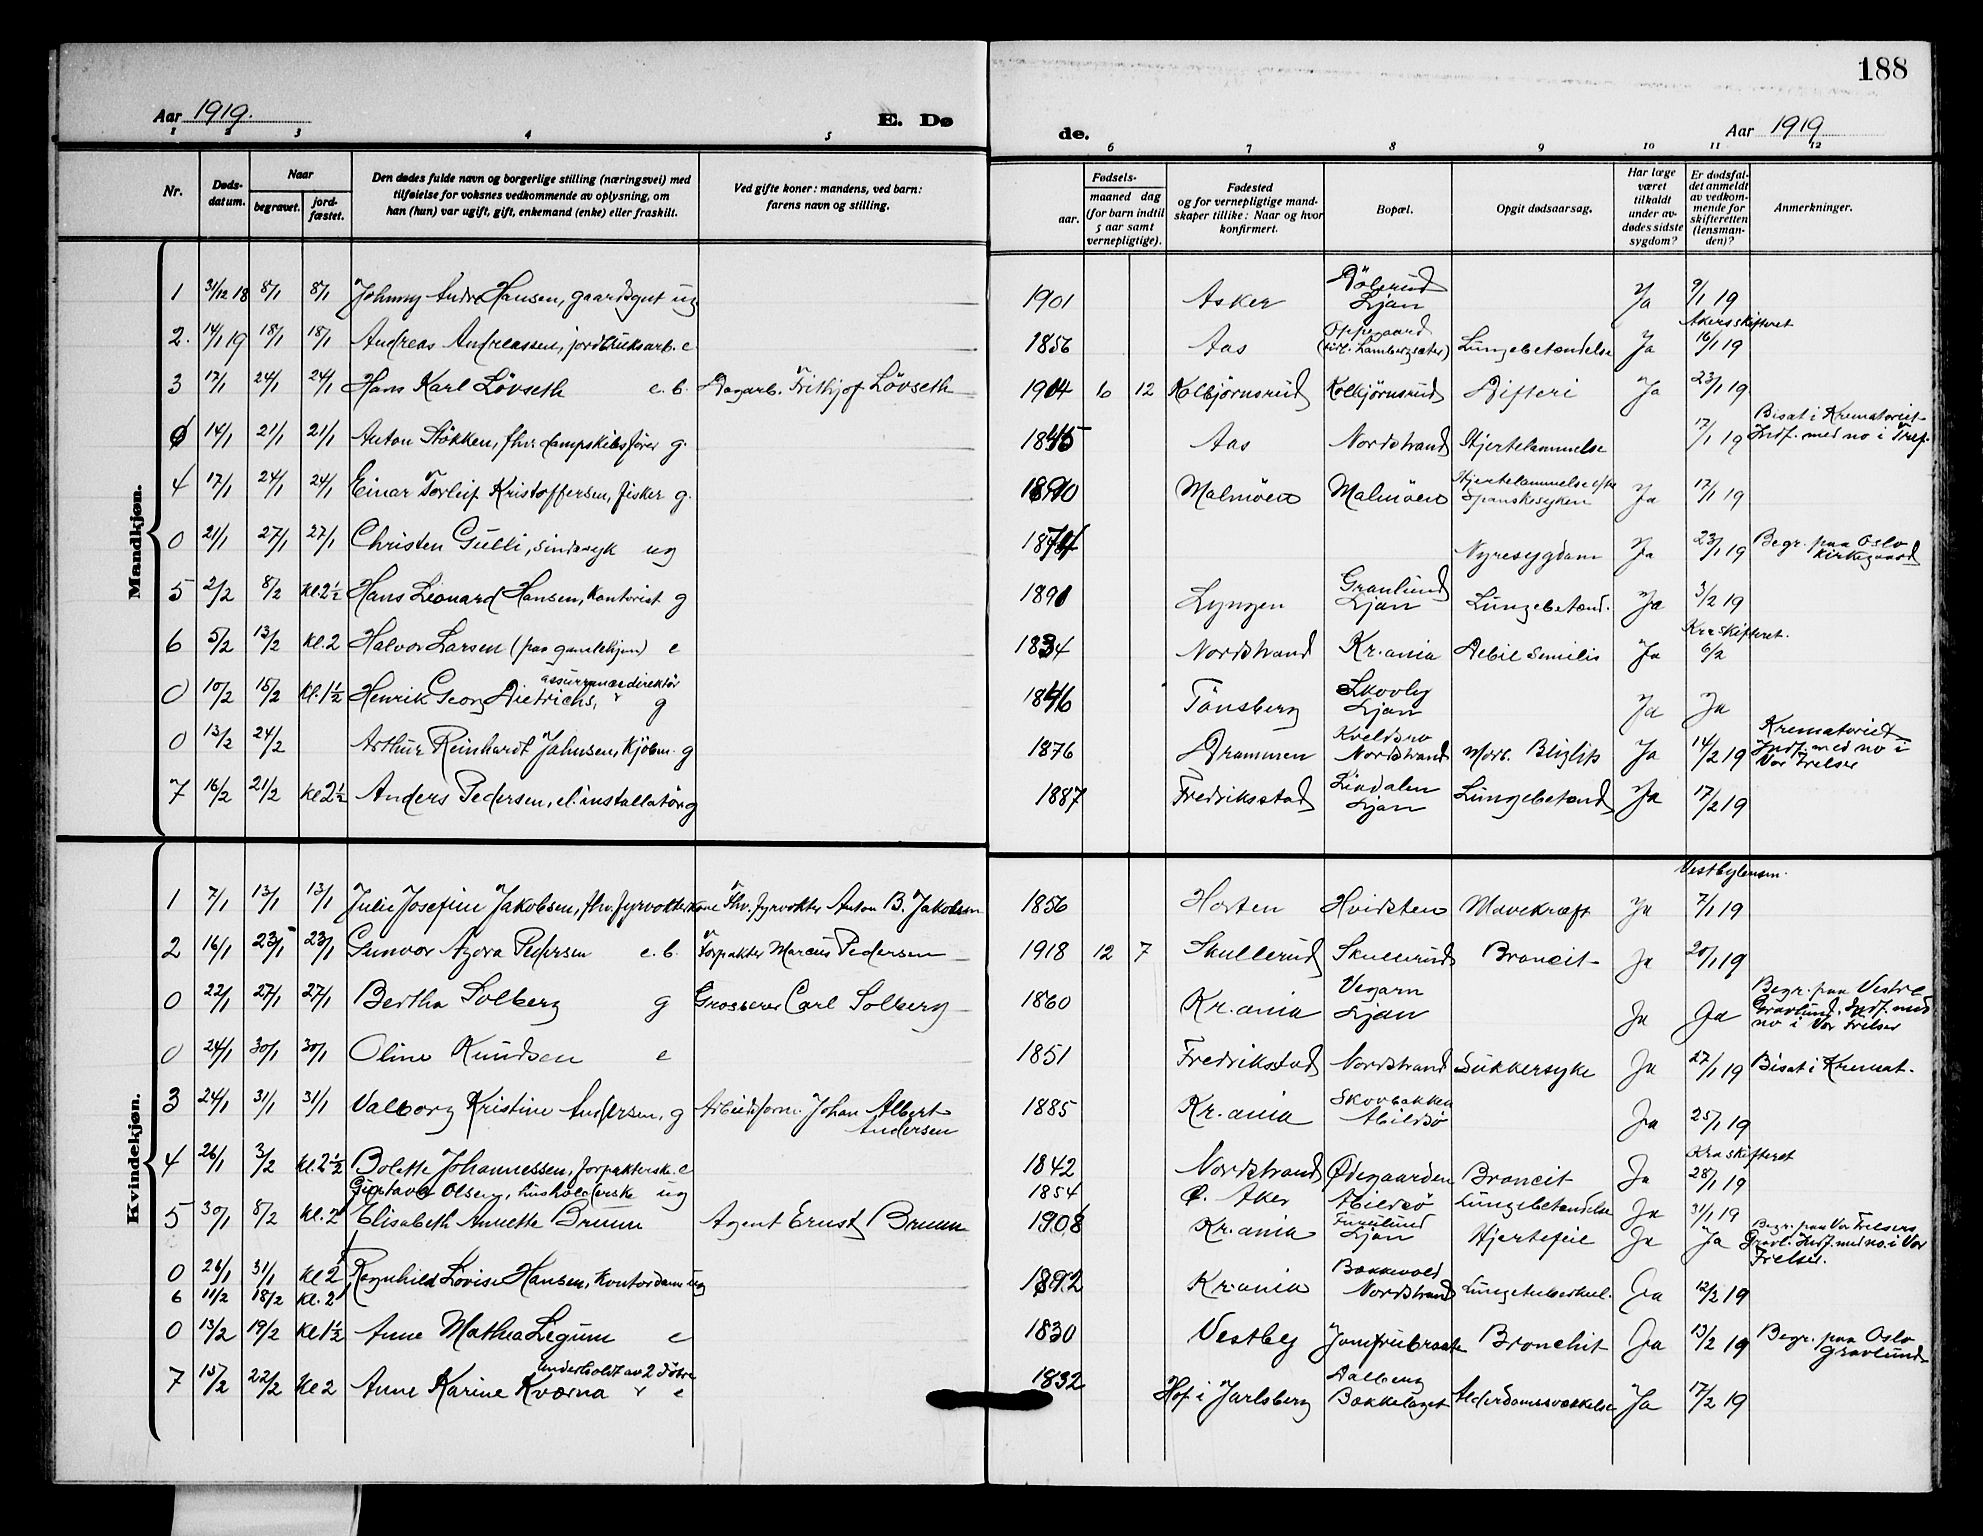 188
Aar 1919. E. Dø de. Aar 1919
1 2 3 4 5 6 7 8 9 10 11 12
Nr.
Døds-
datum.
Naar
begravet.
jord-
fæstet.
Den dødes fulde navn og borgerlige stilling (næringsvei) med
tilføielse for voksnes vedkommende av oplysning, om
han (hun) var ugift, gift, enkemand (enke) eller fraskilt.
Ved gifte koner: mandens, ved barn:
farens navn og stilling.
Fødsels-
aar.
maaned dag
(for barn indtil
5 aar samt
vernepligtige).
Fødested
og for vernepligtige mand-
skaper tillike: Naar og hvor
konfirmert.
Bopæl.
Opgit dødsaarsag.
Har læge
været
tilkaldt
under av-
dødes sidste
sygdom?
Er dødsfal-
det anmeldt
av vedkom-
mende for
skifteretten
(lensman-
den)?
Anmerkninger.
Mandkjøn.
1 31/12 18 8/1 8/1 Johnny Andre Hansen, gaardsgut ug 1901 Asker Ljan Ja 9/1 19
2. 14/1 19 18/1 18/1 Andreas Andreassen, jordbruksarb. e 1856 Aas Oppegaard Lungebetændelse Ja Akersskifteret 16/1 19
3 17/1 24/1 24/1 Hans Karl Lövseth e. b. Dagarb. Frithjof Lövseth 1914 6 12 Kolbjörnsrud Kolbjörnsrud Difteri Ja 23/1 19
0 14/1 21/1 21/1 Anton Stökken, fhv. dampskibsförer g. 1845 Aas Nordstrand Hjertelammelse 17/1 19 Bisat i Krematoriet Indf. med no i Tref.
4 17/1 24/1 24/1 Einar Torleif Kristoffersen, fisker g. 1890 Malmöen Malmöen Hjertelammelse efter Spanskesyken Ja 17/1 19
0 21/1 27/1 27/1 Christen Gulli, sindssyk ug Nyresygdom Ja 23/1 19 Begr. paa Oslo Kirkegaard
5 2/2 8/2 Kl. 2½ Hans Leonard Hansen, Kontorist g 1891 Lyngen Granlund Ljan Lungebetænd. Ja 3/2 19
6 5/2 13/2 Kl. 2 Halvor Larsen (paa gamlehjem) e 1834 Nordstrand Kr.ania Debil senilis Ja Kra skifteret. 6/2
0 10/2 15/2 Kl. 1½ Henrik Georg Dietrichs, assurancedirektör g 1846 Tönsberg Skovly Ljan Ja Ja
0 13/2 24/2 Arthur Reinhardt Johnsen, Kjöbm. g 1876 Drammen Nordstrand Morb. Ja 14/2 19 Krematoriet Indf. med no i Vor Frelser
7 16/2 21/2 Kl 2½ Anders Pedersen, el. installatör g 1887 Fredriksstad Lindalen Ljan Lungebetænd Ja 17/2 19
Kvindekjøn.
1 7/1 13/1 13/1 Julie Josefine Jakobsen, fhv. fyrvokterkone Fhv. fyrvokter Anton B. Jakobsen 1856 Horten Hvidsten Mavekræft Ja Vestbylensm. 7/1 19
2 16/1 23/1 23/1 Gunvor Azora Pedersen e. b. Forpakter Marcus Pedersen 1918 12 7 Skullerud Skullerud Broncit Ja 20/1 19
0 22/1 27/1 27/1 Bertha Solberg g Grosserer Carl Solberg 1860 Kr.ania Vegarn Ljan Ja Ja Begr. paa Vestre Gravlund. Indf. med no i Vor Frelser
0 24/1 30/1 30/1 Oline Knudsen e 1851 Fredriksstad Nordstrand Sukkersyke Ja 27/1 19 Bisat i Kremat.
3 24/1 31/1 31/1 Valborg Kristine Andersen, g Arbeidsform. Johan Albert Andersen 1885 Kr.ania Skovbakken Abildsö Ja 25/1 19
4 26/1 3/2 Kl. 2½ Bolette Johannessen, forpakterske. e 1842 Nordstrand Ødegaarden Broncit Ja Kra skifteret 28/1 19
Gustava Olsen, husholderske ug 1854 Ø. Aker Abildsö Lungebetændelse Ja 31/1 19
5 30/1 8/2 Kl. 2 Elisabeth Annette Bruun Agent Ernst Bruun 1908 Kr.ania Furulund Ljan Hjertefeil Ja Ja Begr. paa Vor Frelsers Gravl. Indf. med no. i Vor Frelser.
0 26/1 31/1 Kl 2
6 11/2 18/2 Kl. 2 Ragnhild Lovise Hansen, Kontordame ug 1892 Kr.ania Bækkevold Nordstrand Lungetuberkul. Ja 12/2 19
0 13/2 19/2 Kl 1½ Anne Mathea Legum e 1830 Vestby Jomfrubraaten Bronchit Ja 13/2 19 Begr. paa Oslo Gravlund
7 15/2 22/2 Kl 2 Anne Karine Kværna underholdt av 2 döbre e 1832 Hof i Jarlsberg Dalberg Bækkelaget Alderdomssvækkelse Ja 17/2 19